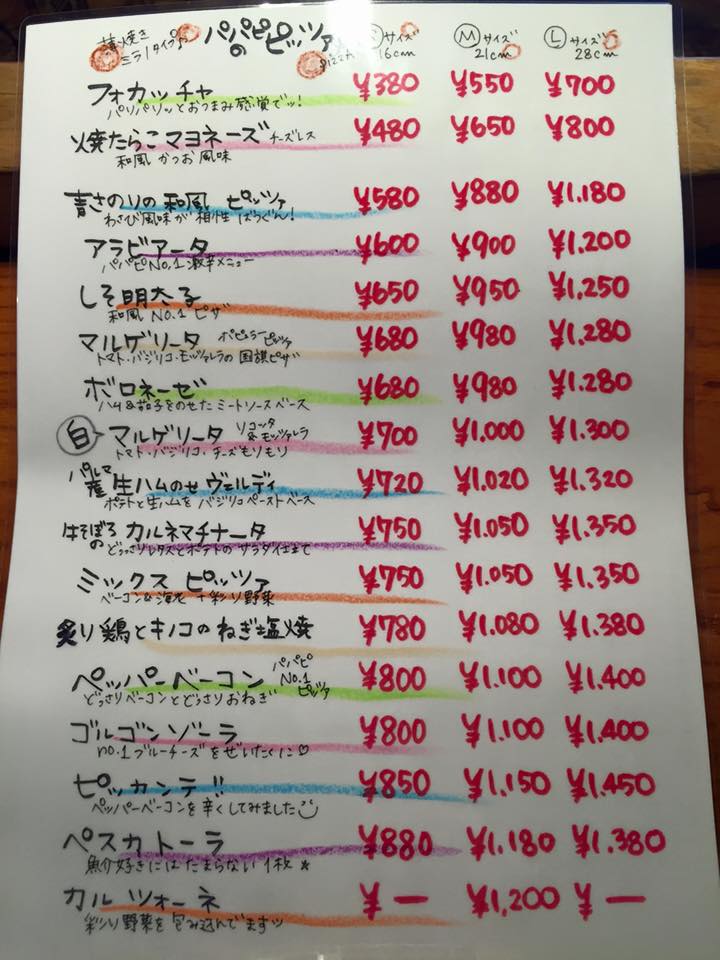 薄焼き
ミラノタイプ♪
パパピピの ピッツァ
pizza
Ⓢ サイズ 16cm Ⓜ サイズ 21cm Ⓛ サイズ 28cm
フォカッチャ ¥380 ¥550 ¥700
パリパリッとおつまみ感覚でッ!
焼たらこマヨネーズ チーズレス ¥480 ¥650 ¥800
和風かつお風味
青さのりの和風 ピッツァ ¥580 ¥880 ¥1.180
わさび風味が相性ばつぐん!
アラビアータ ¥600 ¥900 ¥1.200
パパピNo.1激辛メニュー
しそ明太子 ¥650 ¥950 ¥1.250
和風No.1ピザ
マルゲリータ ポピュラーピッツァ ¥680 ¥980 ¥1.280
トマト・バジリコ・モッツァレラの国旗ピザ
ボロネーゼ ¥680 ¥980 ¥1.280
ハム&茄子をのせたミートソースベース
白 マルゲリータ リコッタ&モッツァレラ ¥700 ¥1.000 ¥1.300
トマト・バジリコ・チーズもりもり
パルマ産 生ハムのせヴェルディ ¥720 ¥1.020 ¥1.320
ポテトと生ハムをバジリコペーストベース
牛そぼろの カルネマチナータ ¥750 ¥1.050 ¥1.350
どっさりレタスとポテトのサラダ仕立て
ミックス ピッツァ ¥750 ¥1.050 ¥1.350
ベーコン&海老+彩り野菜
炙り鶏とキノコのねぎ塩焼 ¥780 ¥1.080 ¥1.380
ペッパーベーコン パパピNo.1ピッツァ ¥800 ¥1.100 ¥1.400
どっさりベーコンとどっさりおねぎ
ゴルゴンゾーラ ¥800 ¥1.100 ¥1.400
no.1ブルーチーズをぜいたくに♡
ピッカンテ!! ¥850 ¥1.150 ¥1.450
ペッパーベーコンを辛くしてみました
ペスカトーラ ¥880 ¥1.180 ¥1.380
魚介好きにはたまらない1枚★
カルツォーネ ¥ー ¥1,200 ¥ー
彩り野菜を包み込んでますッ